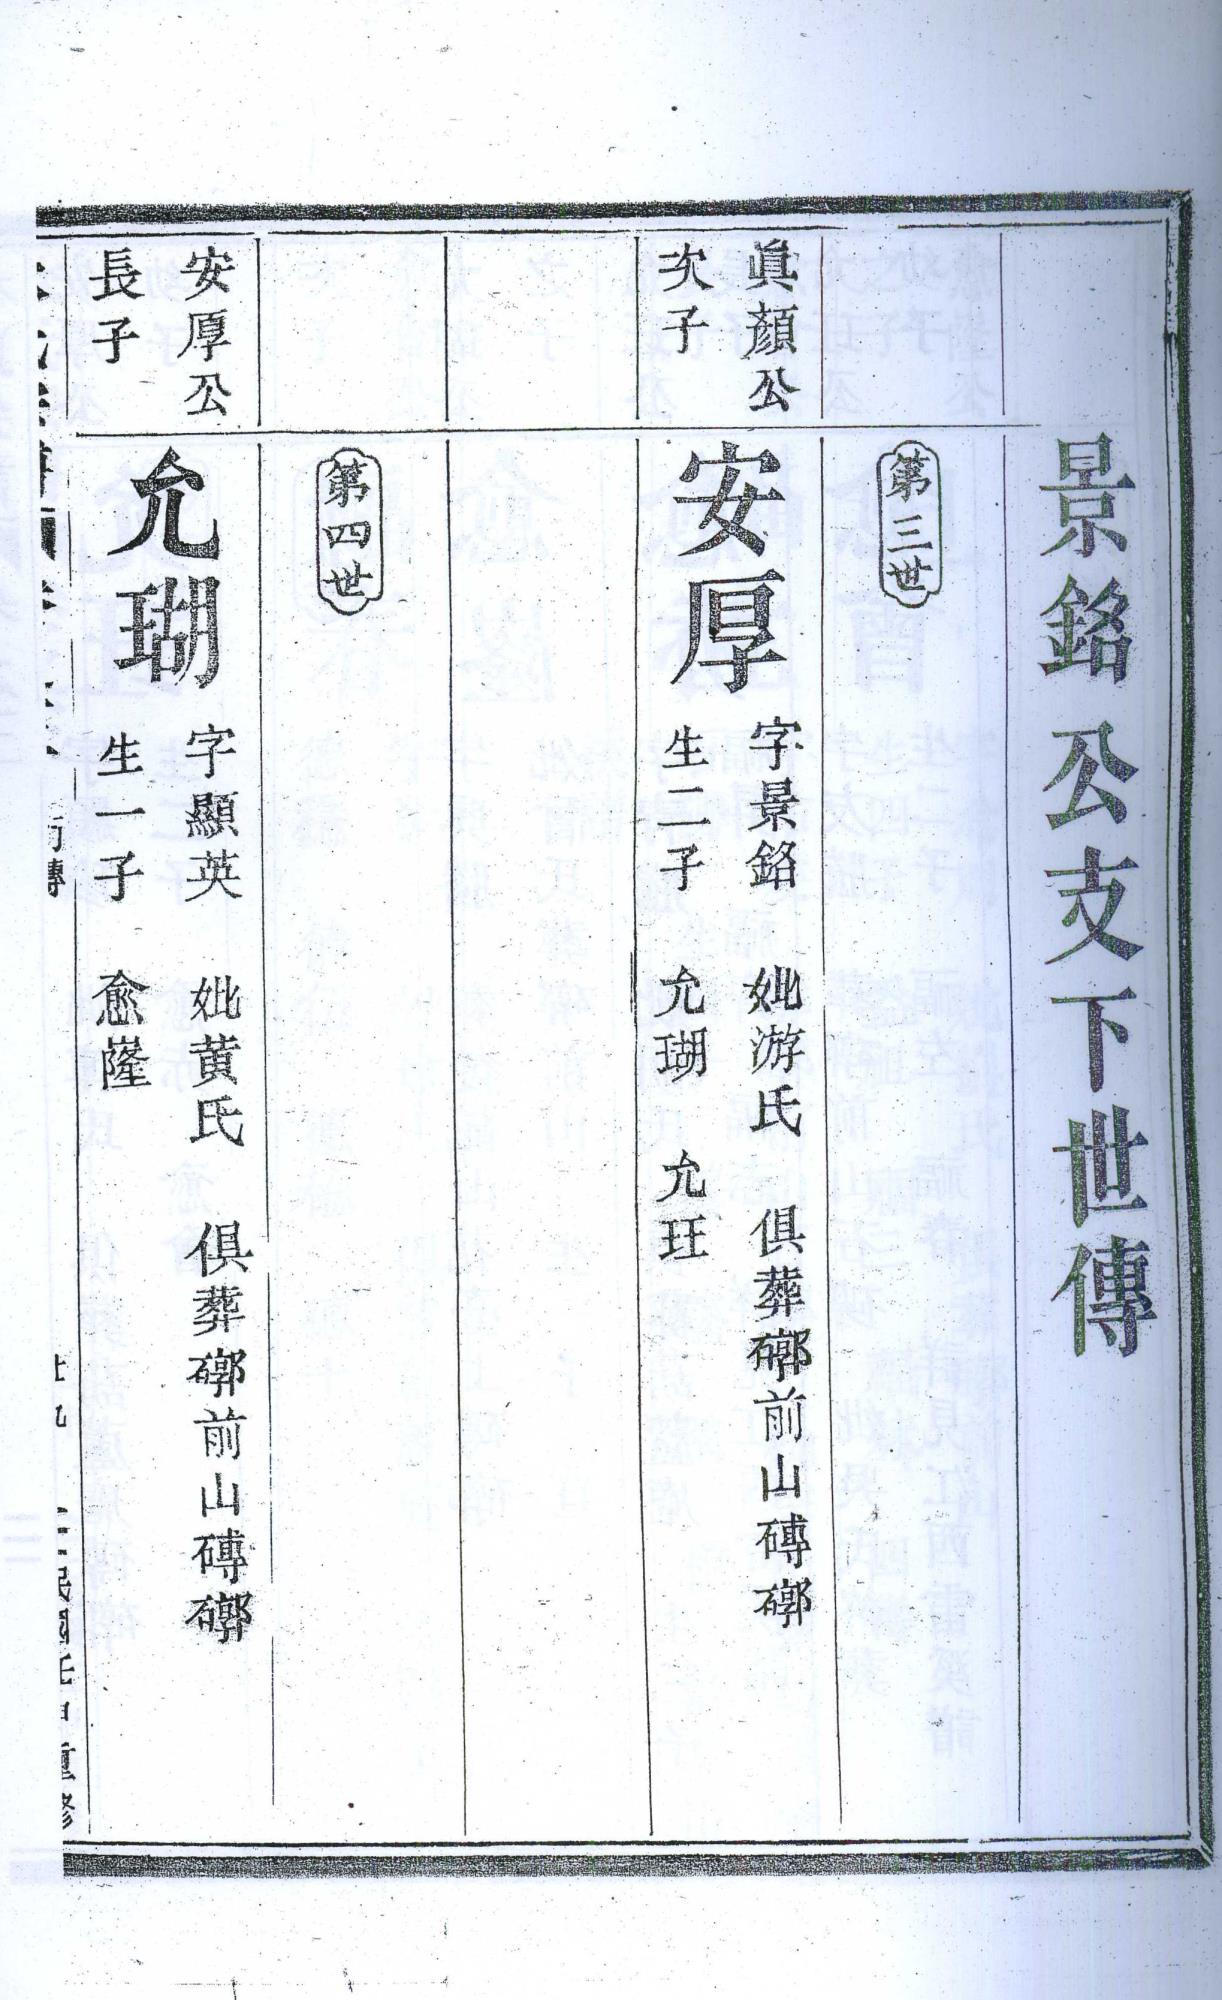 景銘公支下世傳
第三世
眞顏公
次子
安厚
字景銘 妣游氏 俱葬𥕏前山磚𥕏
生二子 允瑚 允玨
第四世
安厚公
長子
允瑚
字顯英 妣黄氏 俱葬𥕏前山磚𥕏
生一子 愈窿
民國壬申重修